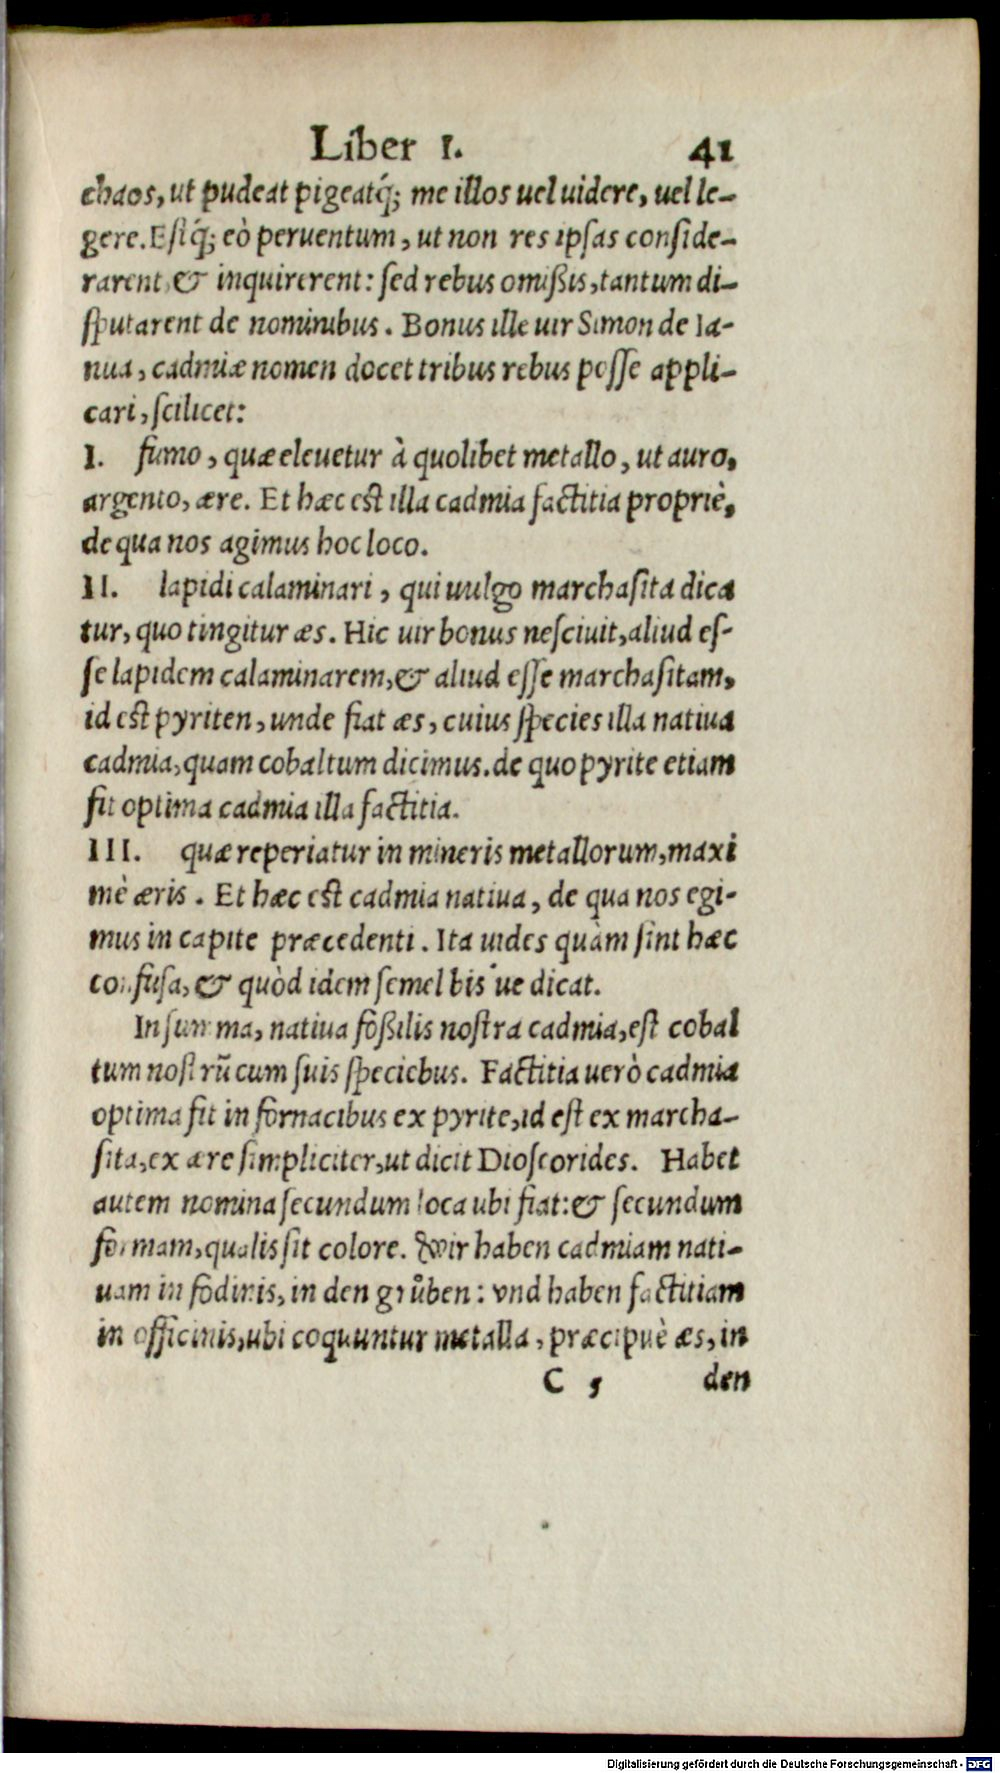 Liber I. 41
chaos, ut pudeat pigeatq́; me illos uel uidere, uel le-
gere. Estq́; eò peruentum, ut non res ipsas conside-
rarent & inquirerent: sed rebus omißis, tantum di-
sputarent de nominibus. Bonus ille uir Simon de Ia-
nua, cadmiæ nomen docet tribus rebus posse appli-
cari, scilicet:
I. fumo, quæ eleuetur à quolibet metallo, ut auro,
argento, ære. Et hæc est illa cadmia factitia propriè,
de qua nos agimus hoc loco.
II. lapidi calaminari, qui uulgo marchasita dica
tur, quo tingitur æs. Hic uir bonus nesciuit, aliud es-
se lapidem calaminarem, & aliud esse marchasitam,
id est pyriten, unde fiat æs, cuius species illa natiua
cadmia, quam cobaltum dicimus. de quo pyrite etiam
fit optima cadmia illa factitia.
III. quæ reperiatur in mineris metallorum, maxi
mè æris. Et hæc est cadmia natiua, de qua nos egi-
mus in capite præcedenti. Ita uides quàm sint hæc
confusa, & quòd idem semel bis ue dicat.
In summa, natiua foßilis nostra cadmia, est cobal
tum nostrũ cum suis speciebus. Factitia uerò cadmia
optima fit in fornacibus ex pyrite, id est ex marcha-
sita, ex ære simpliciter, ut dicit Dioscorides. Habet
autem nomina secundum loca ubi fiat: & secundum
formam, qualis sit colore. Wir haben cadmiam nati-
uam in fodinis, in den grůben: vnd haben factitiam
in officinis, ubi coquuntur metalla, præcipuè æs, in
C 5 den
Digitalisierung gefördert durch die Deutsche Forschungsgemeinschaft - DFG